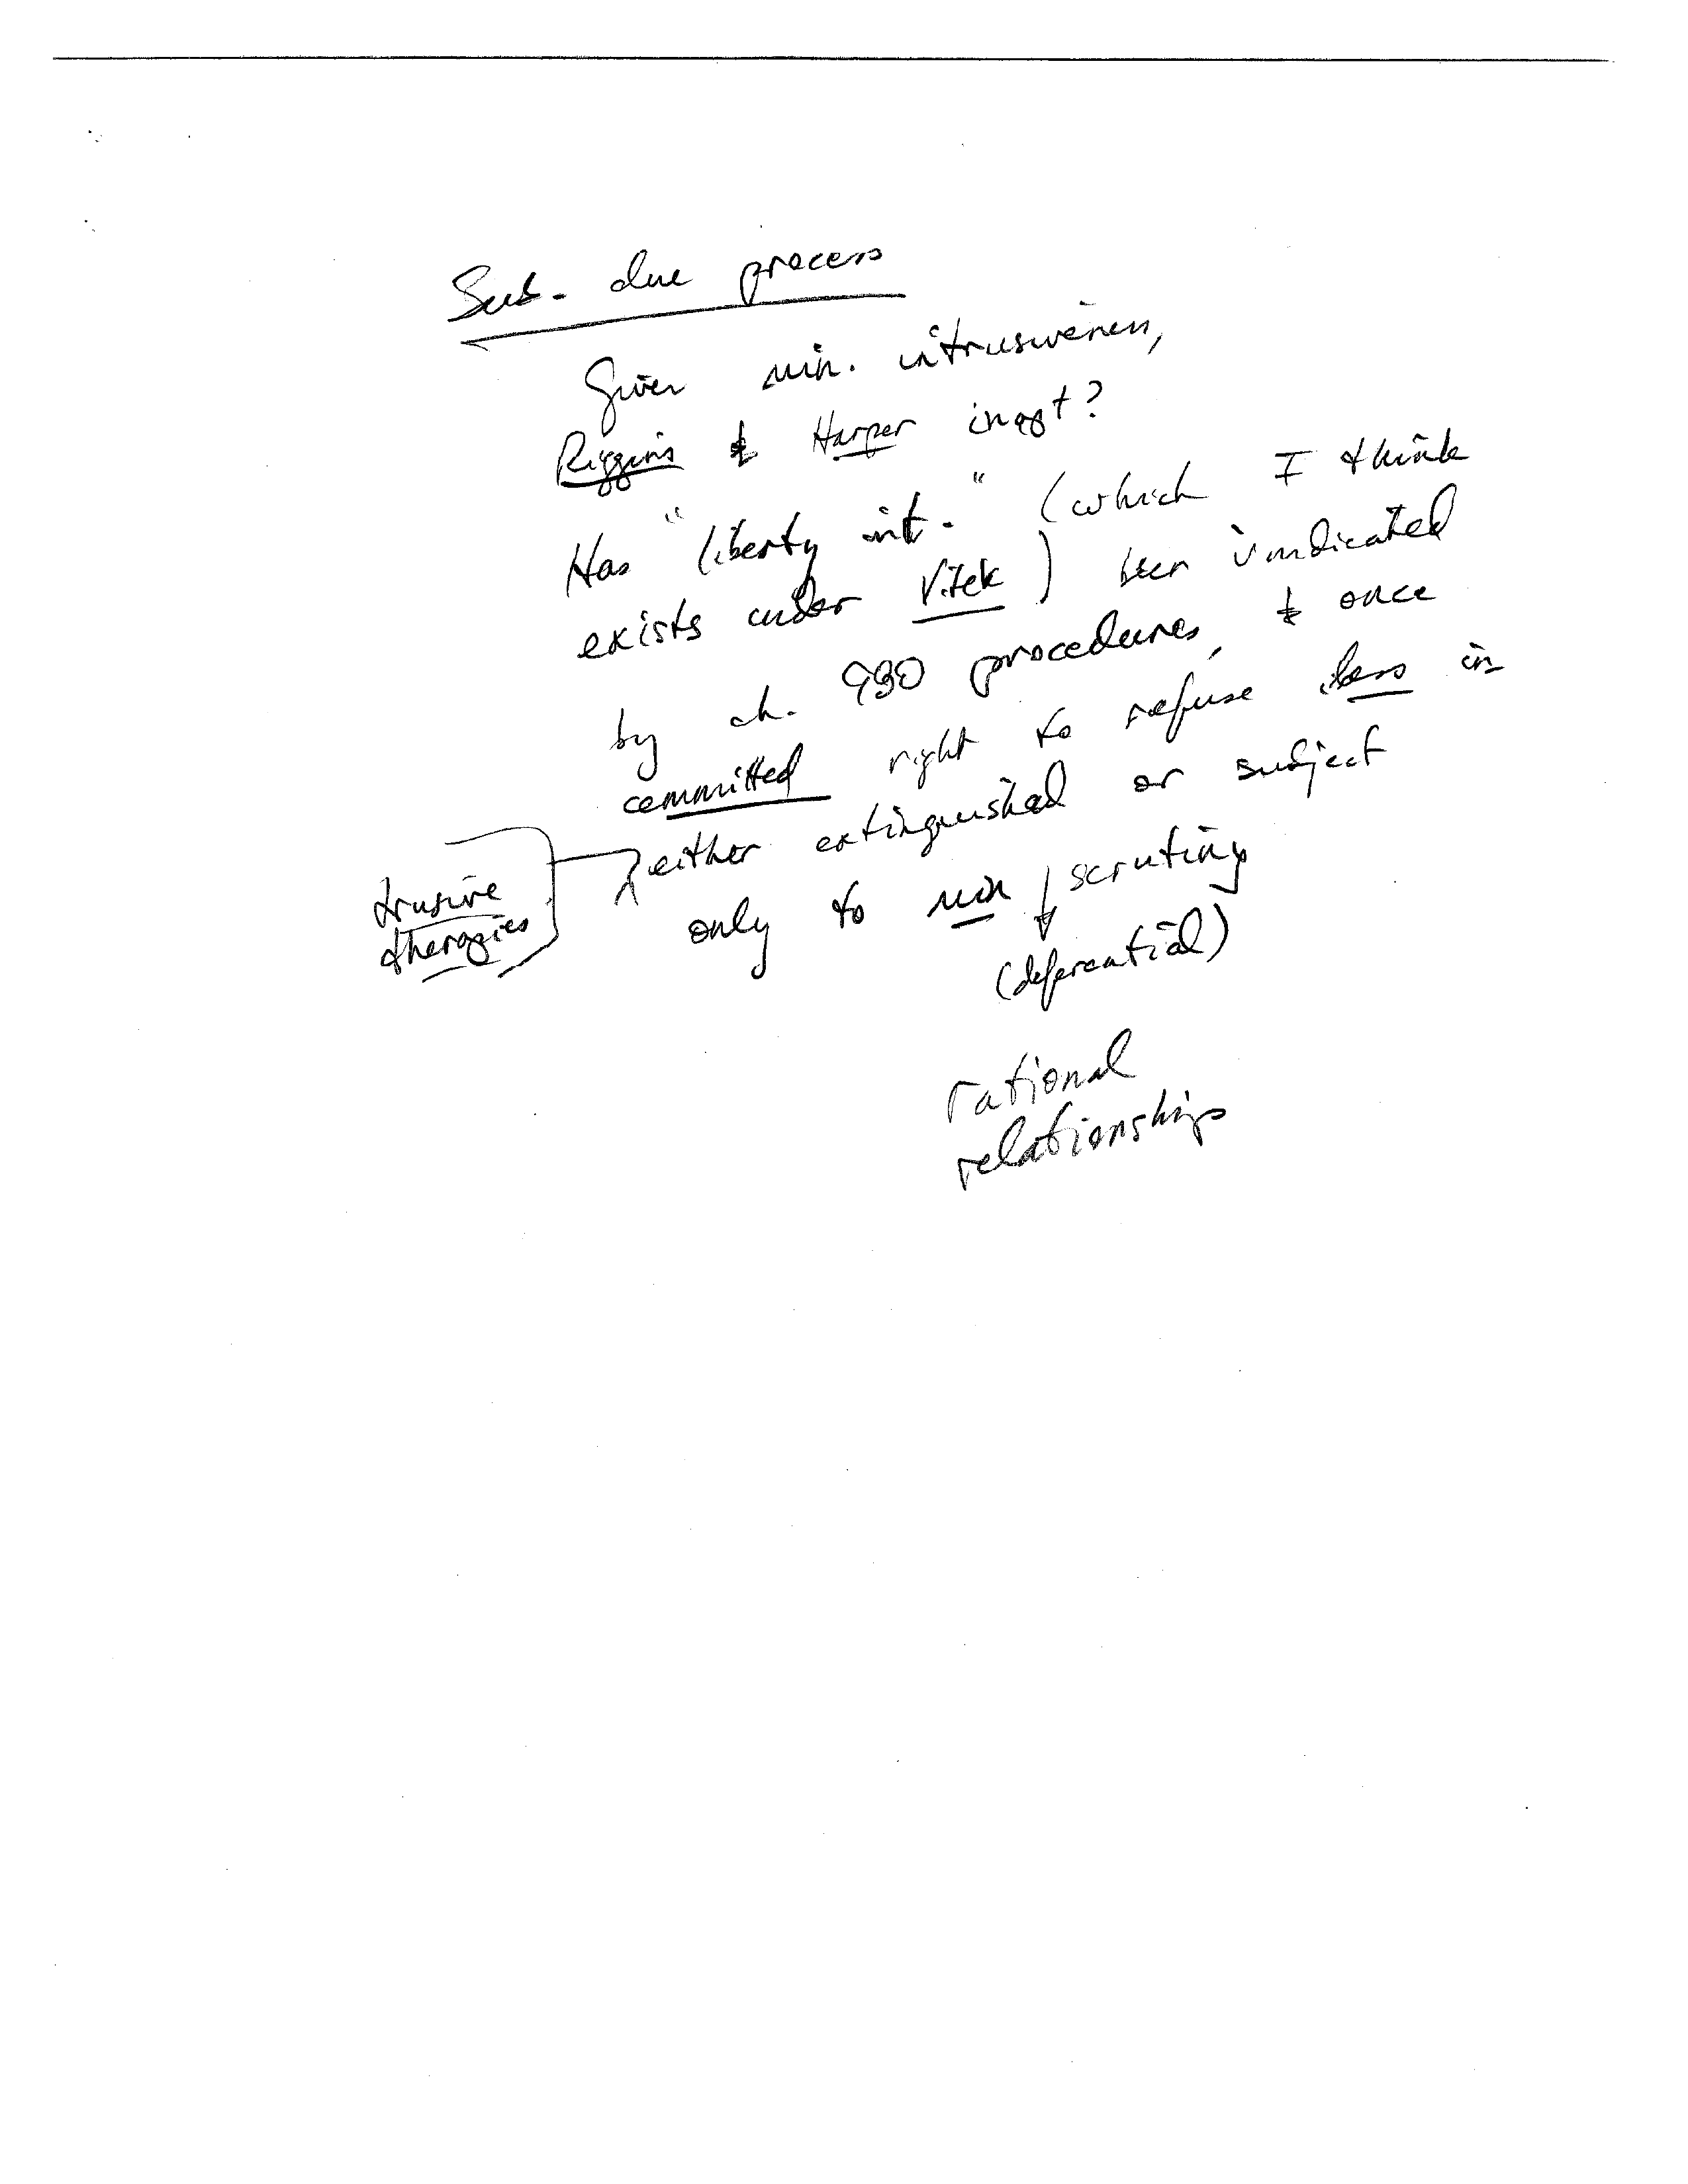 Sub. due process
Given min. intrusiveness,
Riggins & Harper inapt?
Has "liberty int." (which I think
exists under Vitek) been vindicated
by ch. 980 procedures, & once
committed right to refuse less in
trusive
therapies
either extinguished or subject
only to min scrutiny
(deferential)
rational
relationships